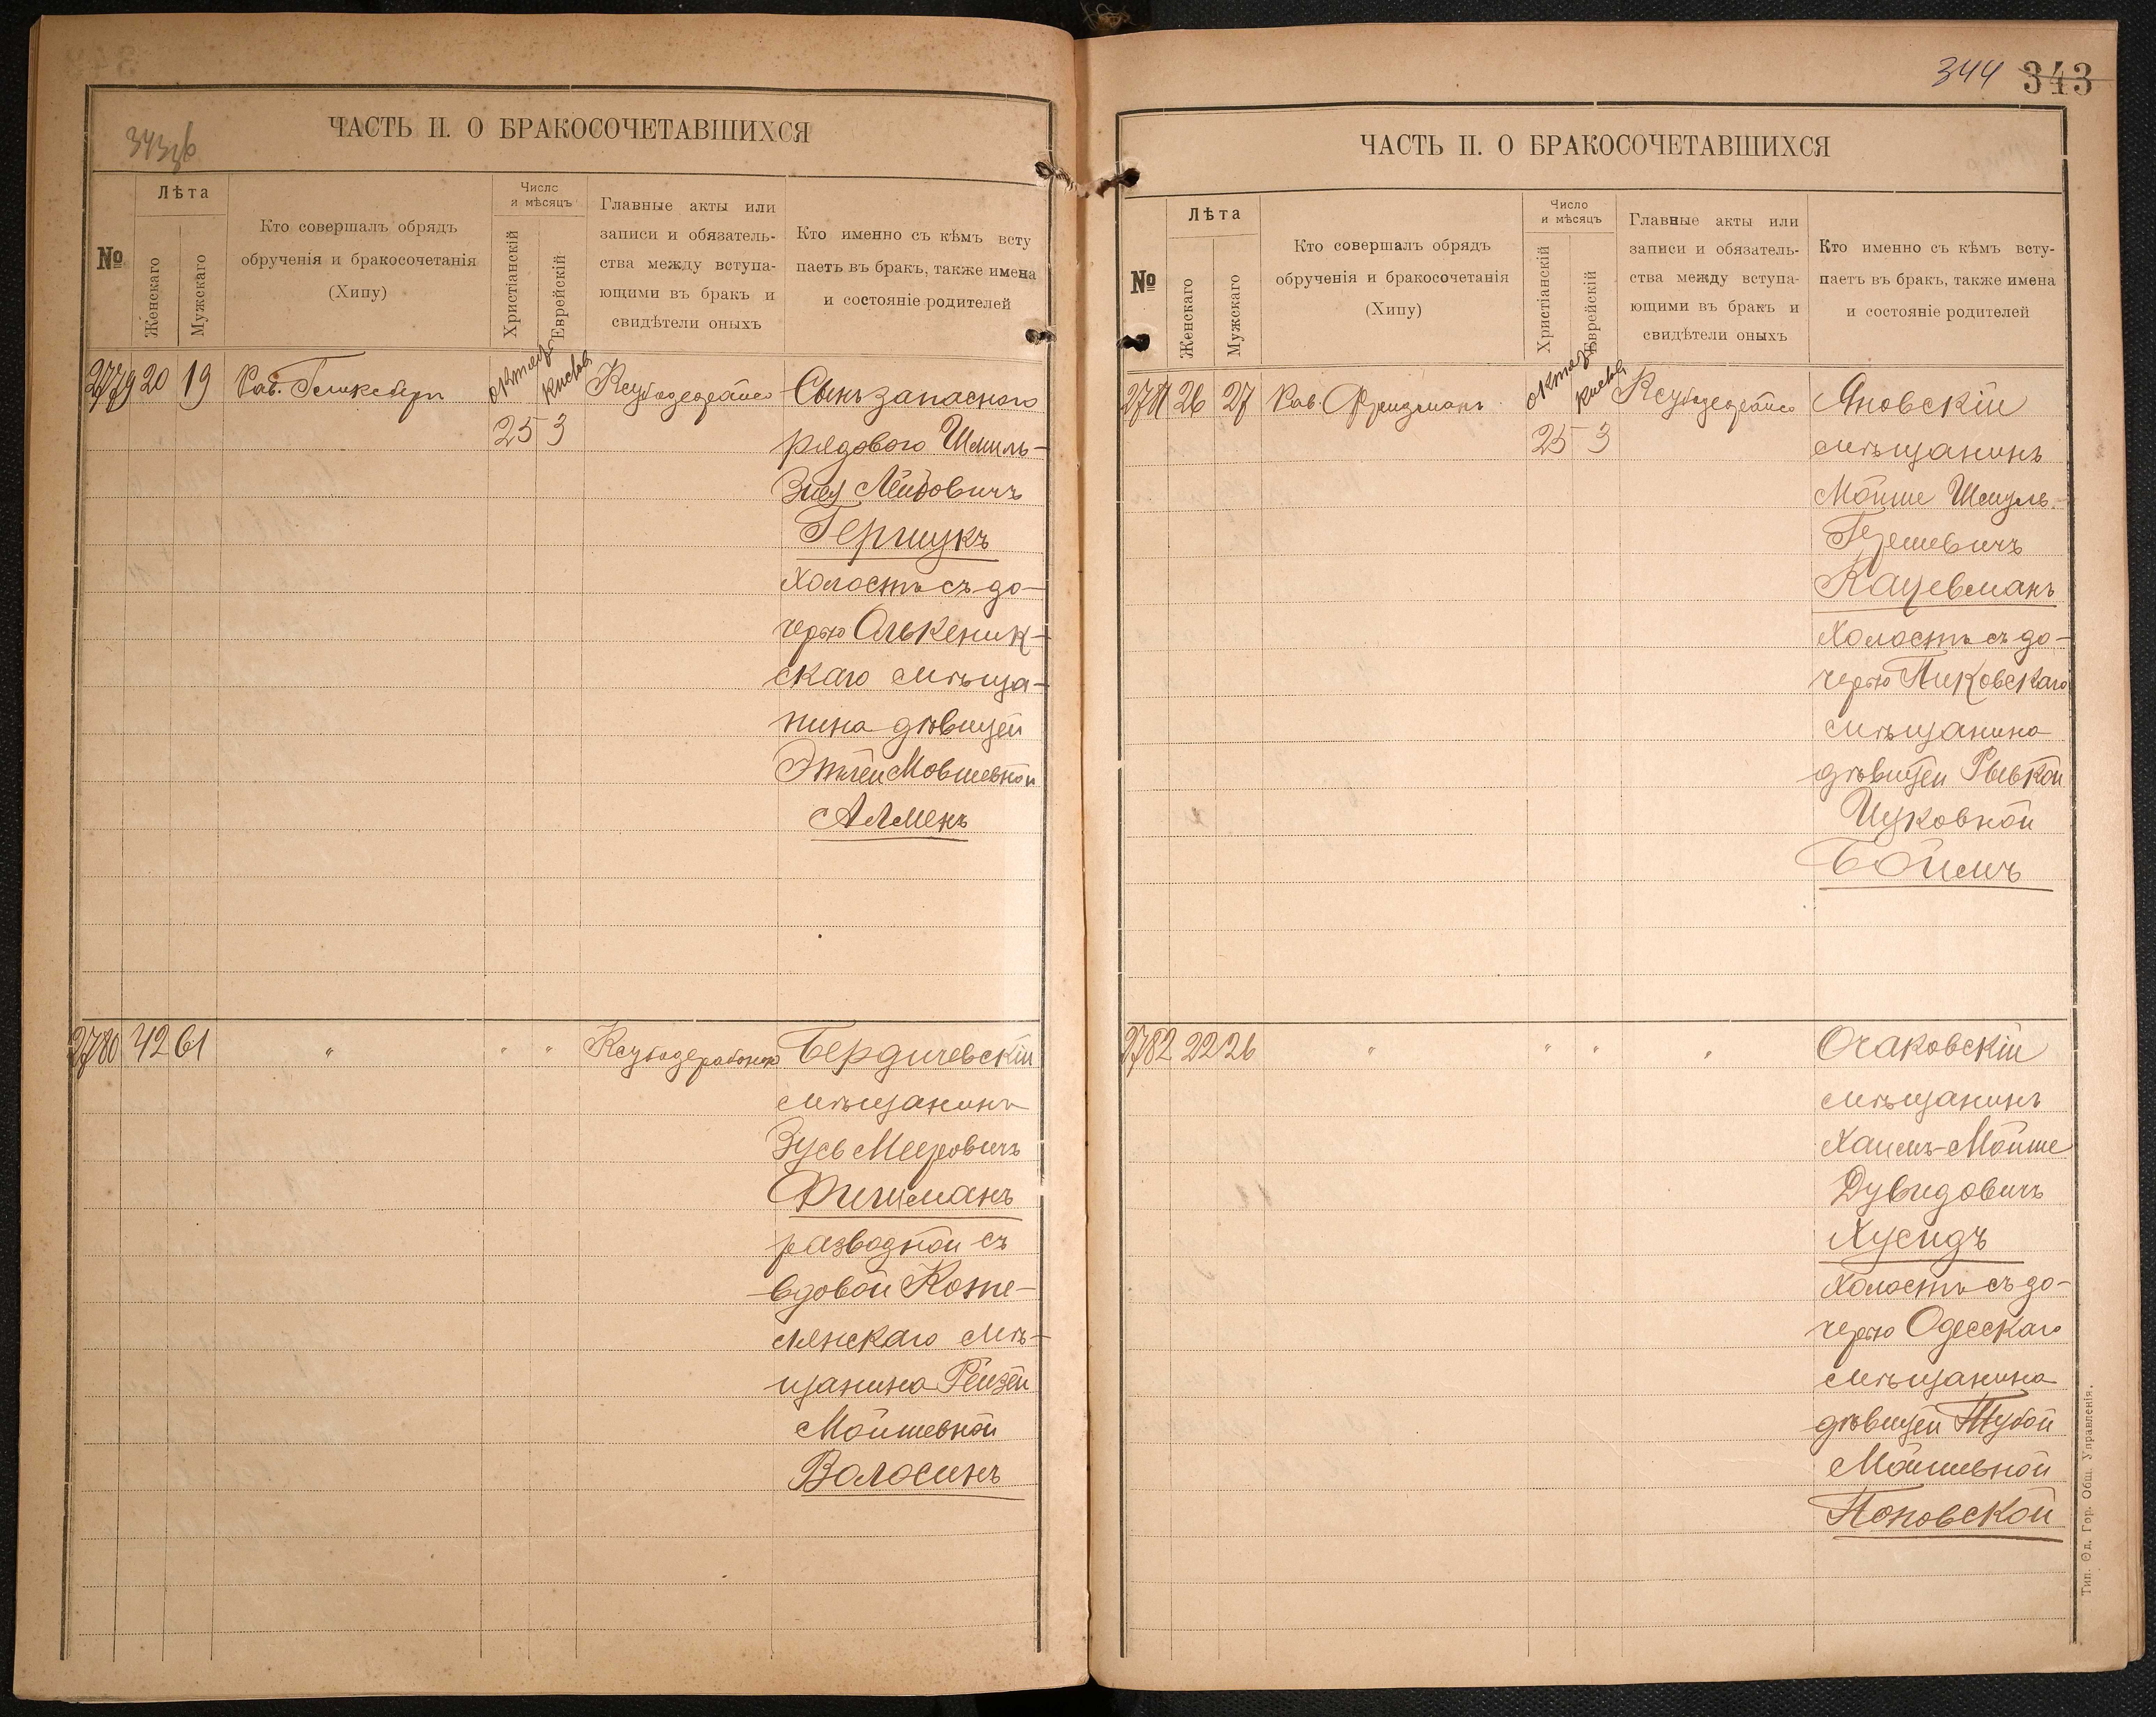 343об
ЧАСТЬ II. О БРАКОСОЧЕТАВШИХСЯ
№
Лѣта
Женскаго
Мужскаго
Кто совершалъ обрядъ
обрученія и бракосочетанія
(Хипу)
Число
и мѣсяцъ
Христіанскій
Еврейскій
Главные акты или
записи и обязатель-
ства между вступа-
ющими въ бракъ и
свидѣтели оныхъ
Кто именно съ кѣмъ всту
паетъ въ бракъ, также имена
и состояніе родителей
2779 20 19
Рав.
октяб
25 3
Сынъ запаснаго
рядового Шмиль-
Лейбовичъ
Гершукъ
холостъ съ до-
черью Олькеник-
скаго мѣща-
нина дѣвицей
Этлей Мовшевной
Алменъ
2780 42 61 " " "
Бердичевскій
мѣщанинъ
Зусь Мееровичъ
Фишманъ
разводной съ
вдовой Коте-
лянскаго мѣ-
щанина Рейзей
Мойшевной
Волосинъ
344 343
ЧАСТЬ II. О БРАКОСОЧЕТАВШИХСЯ
№
Лѣта
Женскаго
Мужскаго
Кто совершалъ обрядъ
обрученія и бракосочетанія
(Хипу)
Число
и мѣсяцъ
Христіанскій
Еврейскій
Главные акты или
записи и обязатель-
ства между вступа-
ющими въ бракъ и
свидѣтели оныхъ
Кто именно съ кѣмъ всту-
паетъ въ бракъ, также имена
и состояніе родителей
2781 26 27
Рав Фридманъ
октяб
25 3
Яновскій
мѣщанинъ
Мойше Шмуль
Гершевичъ
Кацевманъ
холостъ съ до-
черью Пиковскаго
мѣщанина
дѣвицей Рывкой
Ицковной
Боймъ
2782 22 26 " " " "
Очаковскій
мѣщанинъ
Хаимъ-Мойше
Дувидовичъ
Хусидъ
холостъ съ до-
черью Одесскаго
мѣщанина
дѣвицей Тубой
Мойшевной
Поповской
Тип. Од. Гор. Общ. Управленія.